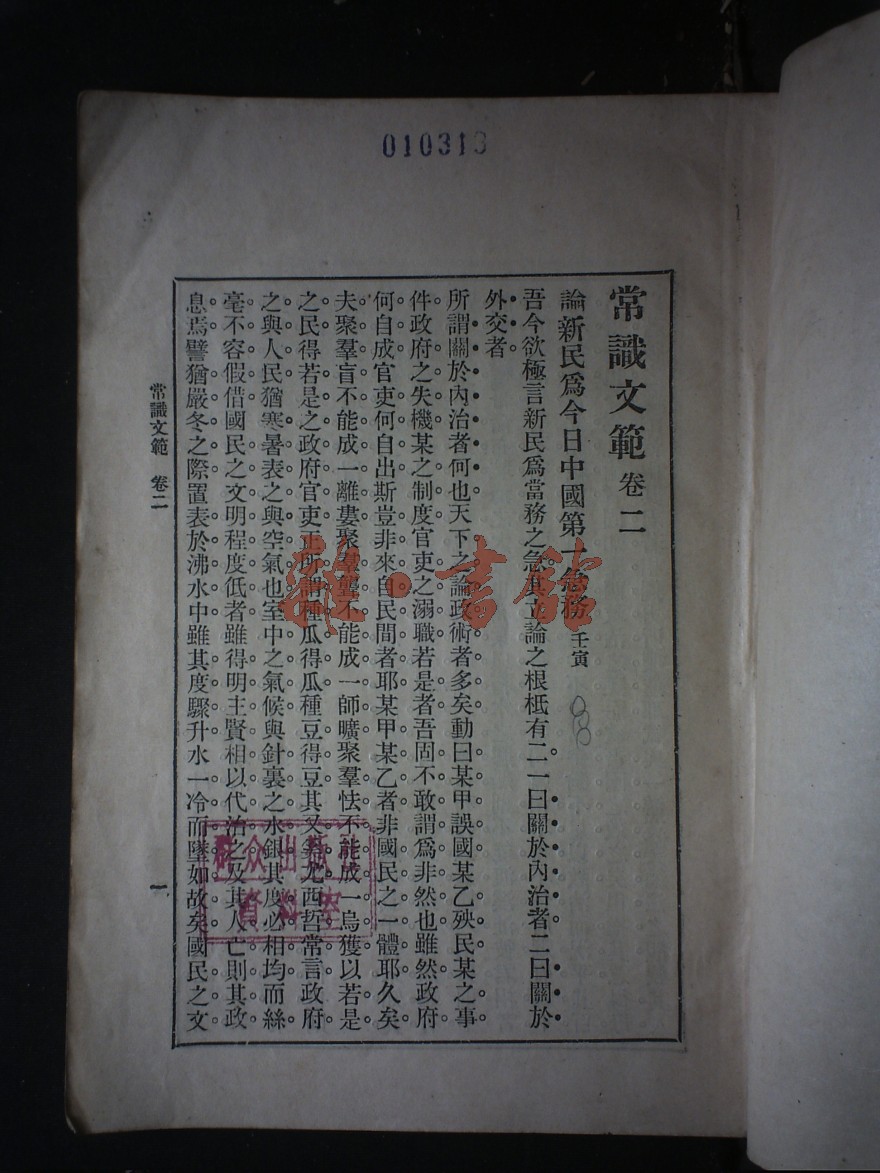 010313
常識文範 卷二
論新民爲今日中國第一急務 壬寅
吾今欲極言新民爲當務之急其立論之根柢有二一曰關於內治者二曰關於
外交者
所謂關於內治者何也天下之論政術者多矣動曰某甲誤國某乙殃民某之事
件政府之失機某之制度官吏之溺職若是者吾固不敢謂爲非然也雖然政府
何自成官吏何自出斯豈非來自民間者耶某甲某乙者非國民之一體耶久矣
夫聚羣盲不能成一離婁聚羣聾不能成一師曠聚羣怯不能成一烏獲以若是
之民得若是之政府官吏正所謂種瓜得瓜種豆得豆其又奚尤西哲常言政府
之與人民猶寒暑表之與空氣也室中之氣候與針裏之水銀其度必相均而絲
毫不容假借國民之文明程度低者雖得明主賢相以代治之及其人亡則其政
息焉譬猶嚴冬之際置表於沸水中雖其度驟升水一冷而墜如故矣國民之文
常識文範 卷二
一
群众出版社
資料室
雜·書館